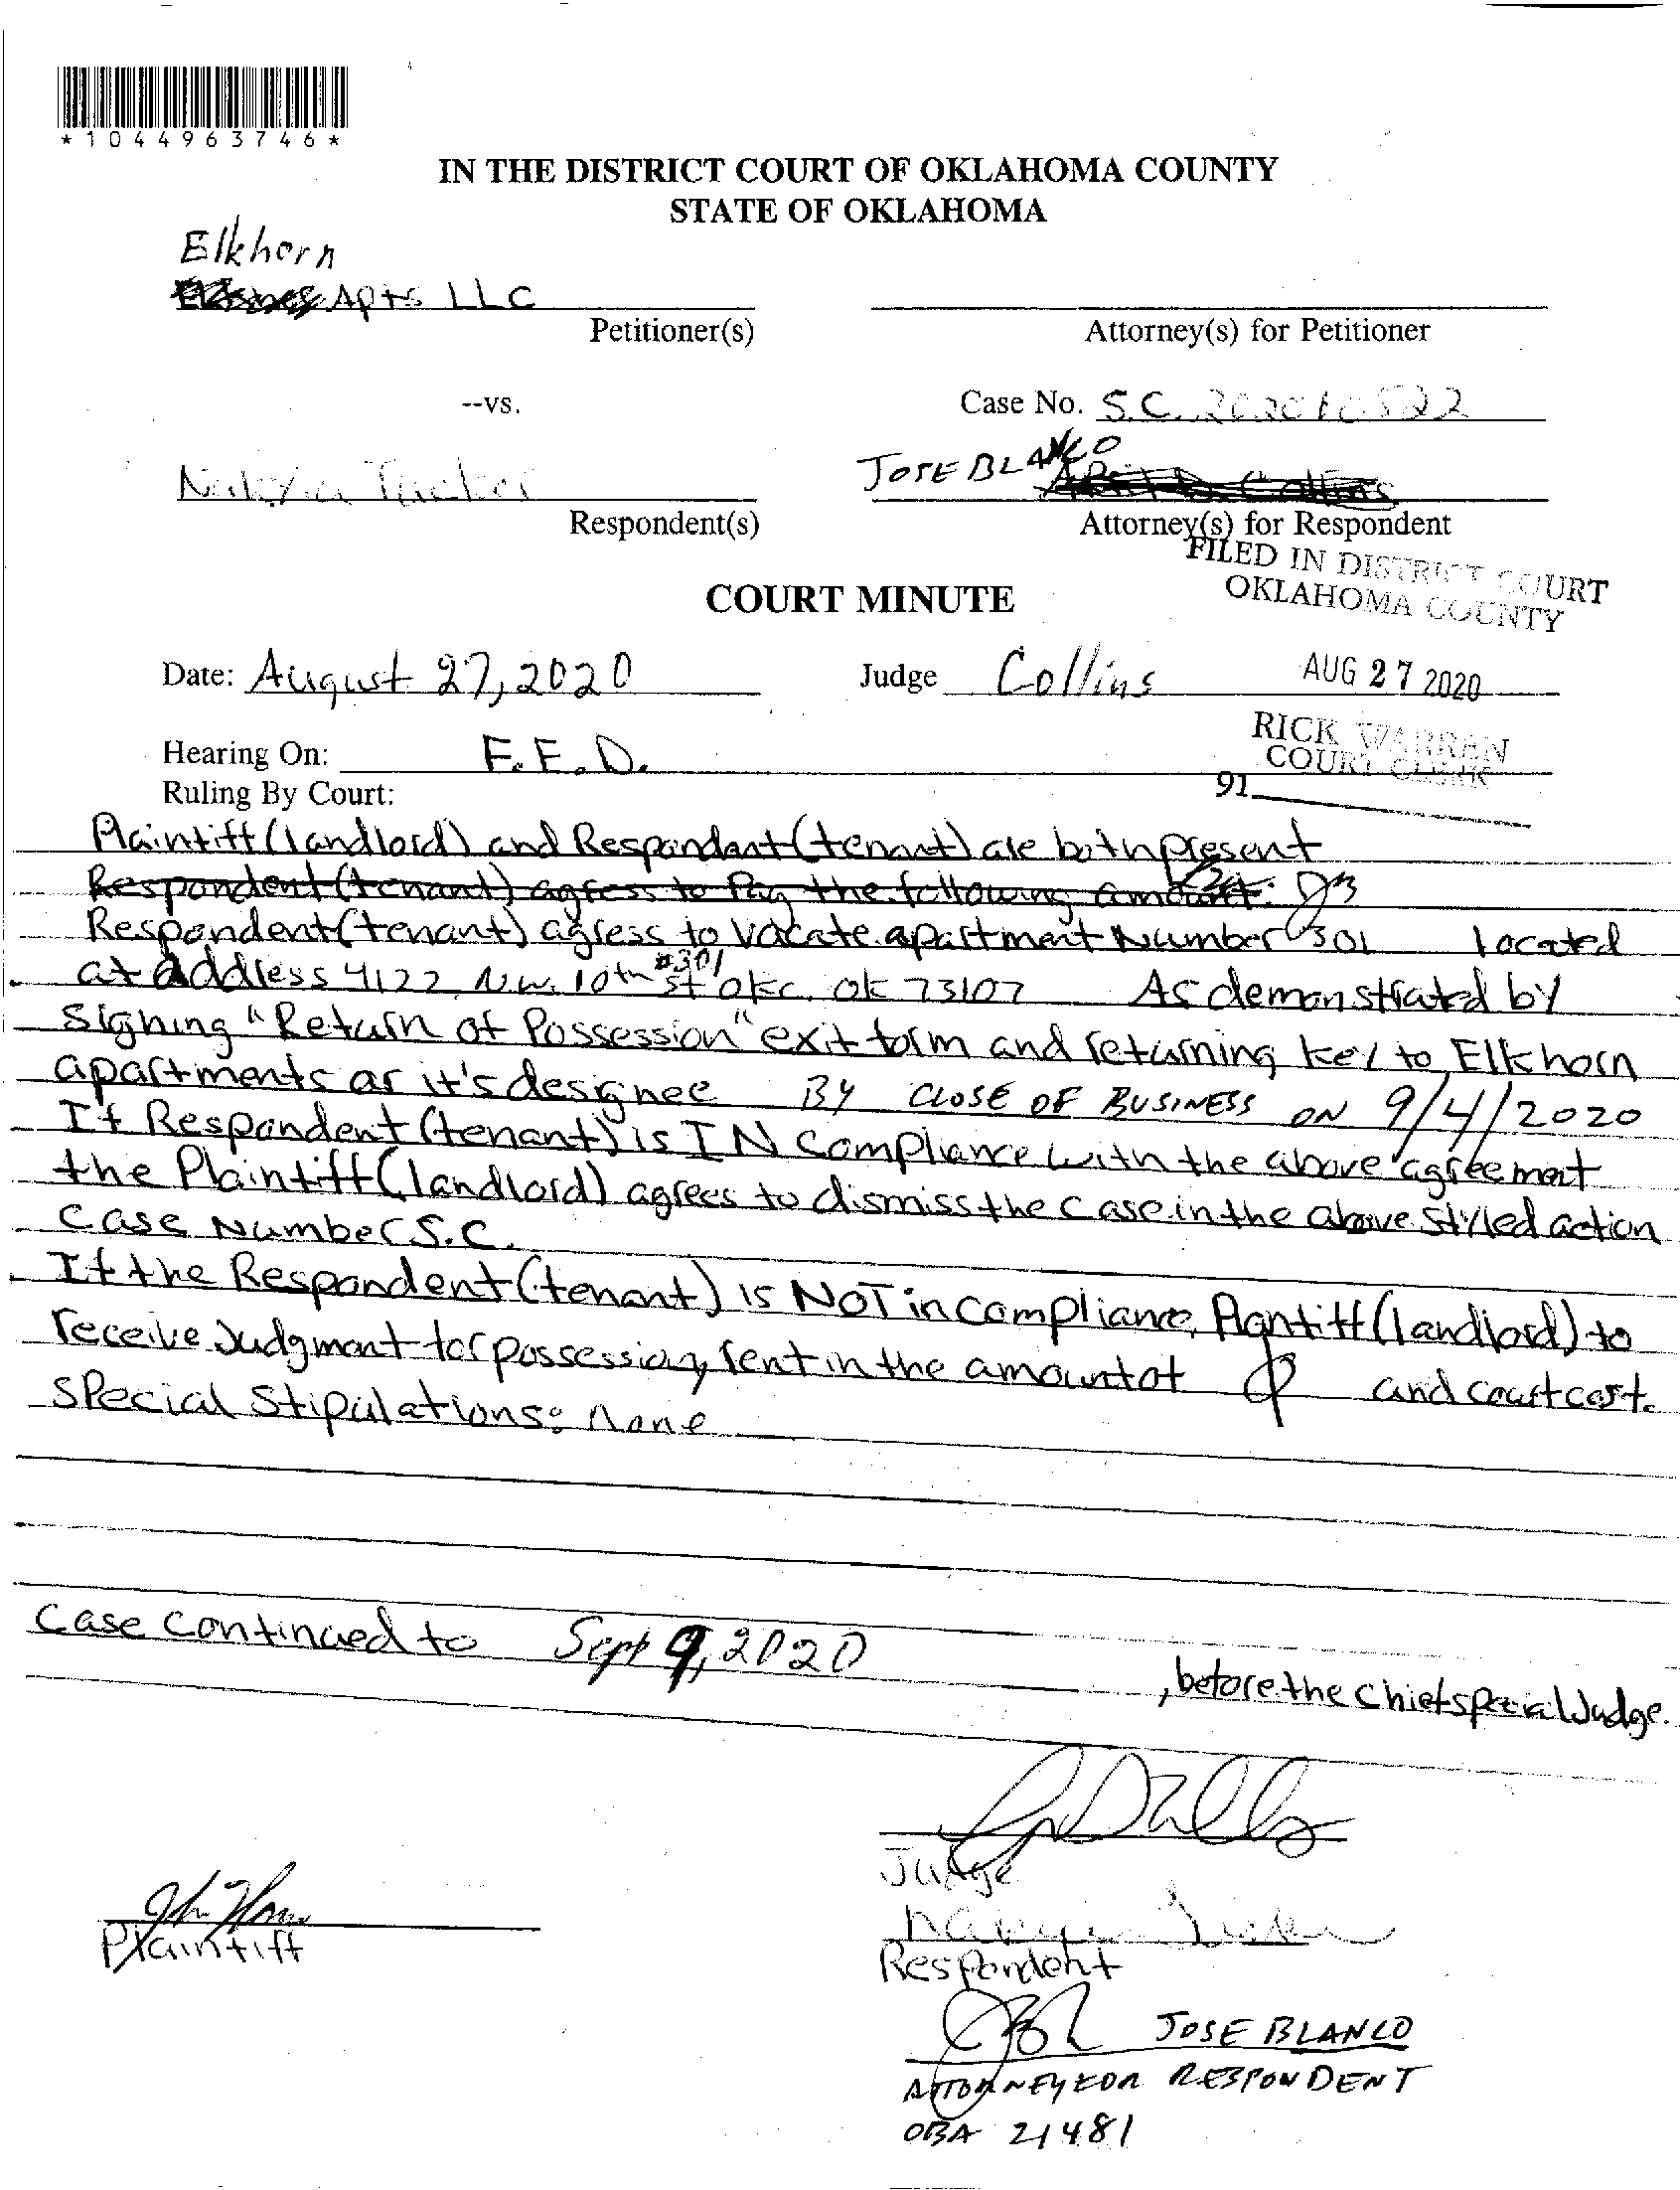 *1044963746*
IN THE DISTRICT COURT OF OKLAHOMA COUNTY
STATE OF OKLAHOMA
Elkhorn
Apts LLC
Petitioner(s)
Attorney(s) for Petitioner
--vs.
Case No. S.C. 2020 10522
Tucker
JOSE BLANCO
Collins
Respondent(s)
Attorney(s) for Respondent
FILED IN DISTRICT COURT
OKLAHOMA COUNTY
COURT MINUTE
Date: August 27, 2020
Judge Collins
AUG 27 2020
Hearing On: F.E.D.
RICK WARREN
COURT CLERK
91
Ruling By Court:
Plaintiff (landlord) and Respondant (tenant) are both present
Respondent (tenant) agress to Pay the following amount:
Respondent (tenant) agress to vacate apartment Number 301 located
at address 4122 N.W. 10th #301 st okc. ok 73107 As demonstrated by
signing "Return of Possession" exit form and returning key to Elkhorn
apartments or it's designee BY CLOSE OF BUSINESS ON 9/4/2020
If Respondent (tenant) is IN compliance with the above agreement
the Plaintiff (landlord) agrees to dismiss the case in the above styled action
Case Number S.C.
If the Respondent (tenant) is NOT in compliance, Plantiff (landlord) to
receive Judgment for possession, rent in the amount of and court cost.
Special Stipulations: None
Case continued to Sept 9, 2020
, before the Chief special Judge.
Judge
Plaintiff
Respondent
JOSE BLANCO
ATTORNEY FOR RESPONDENT
OBA 21481